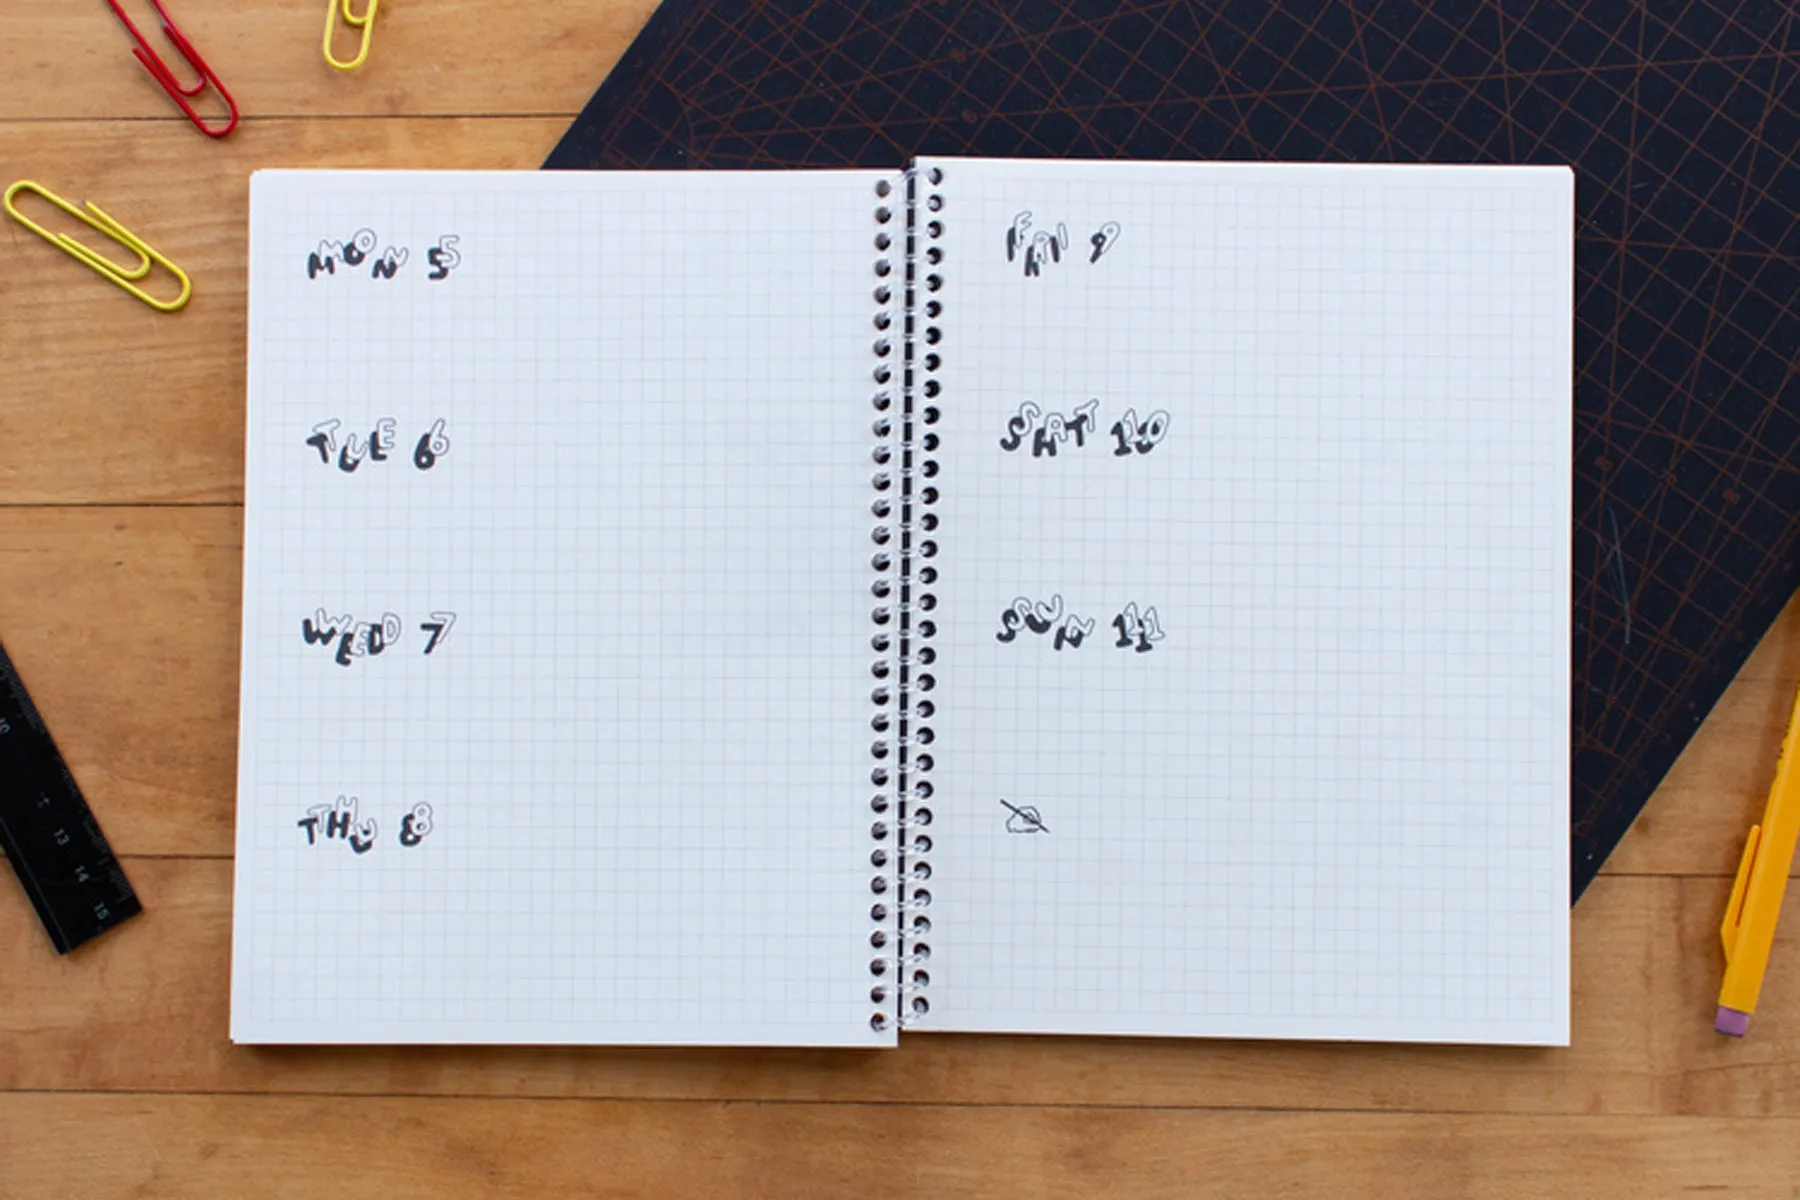 MON 5
TUE 6
WED 7
THU 8
FRI 9
SAT 10
SUN 11
13
14
15